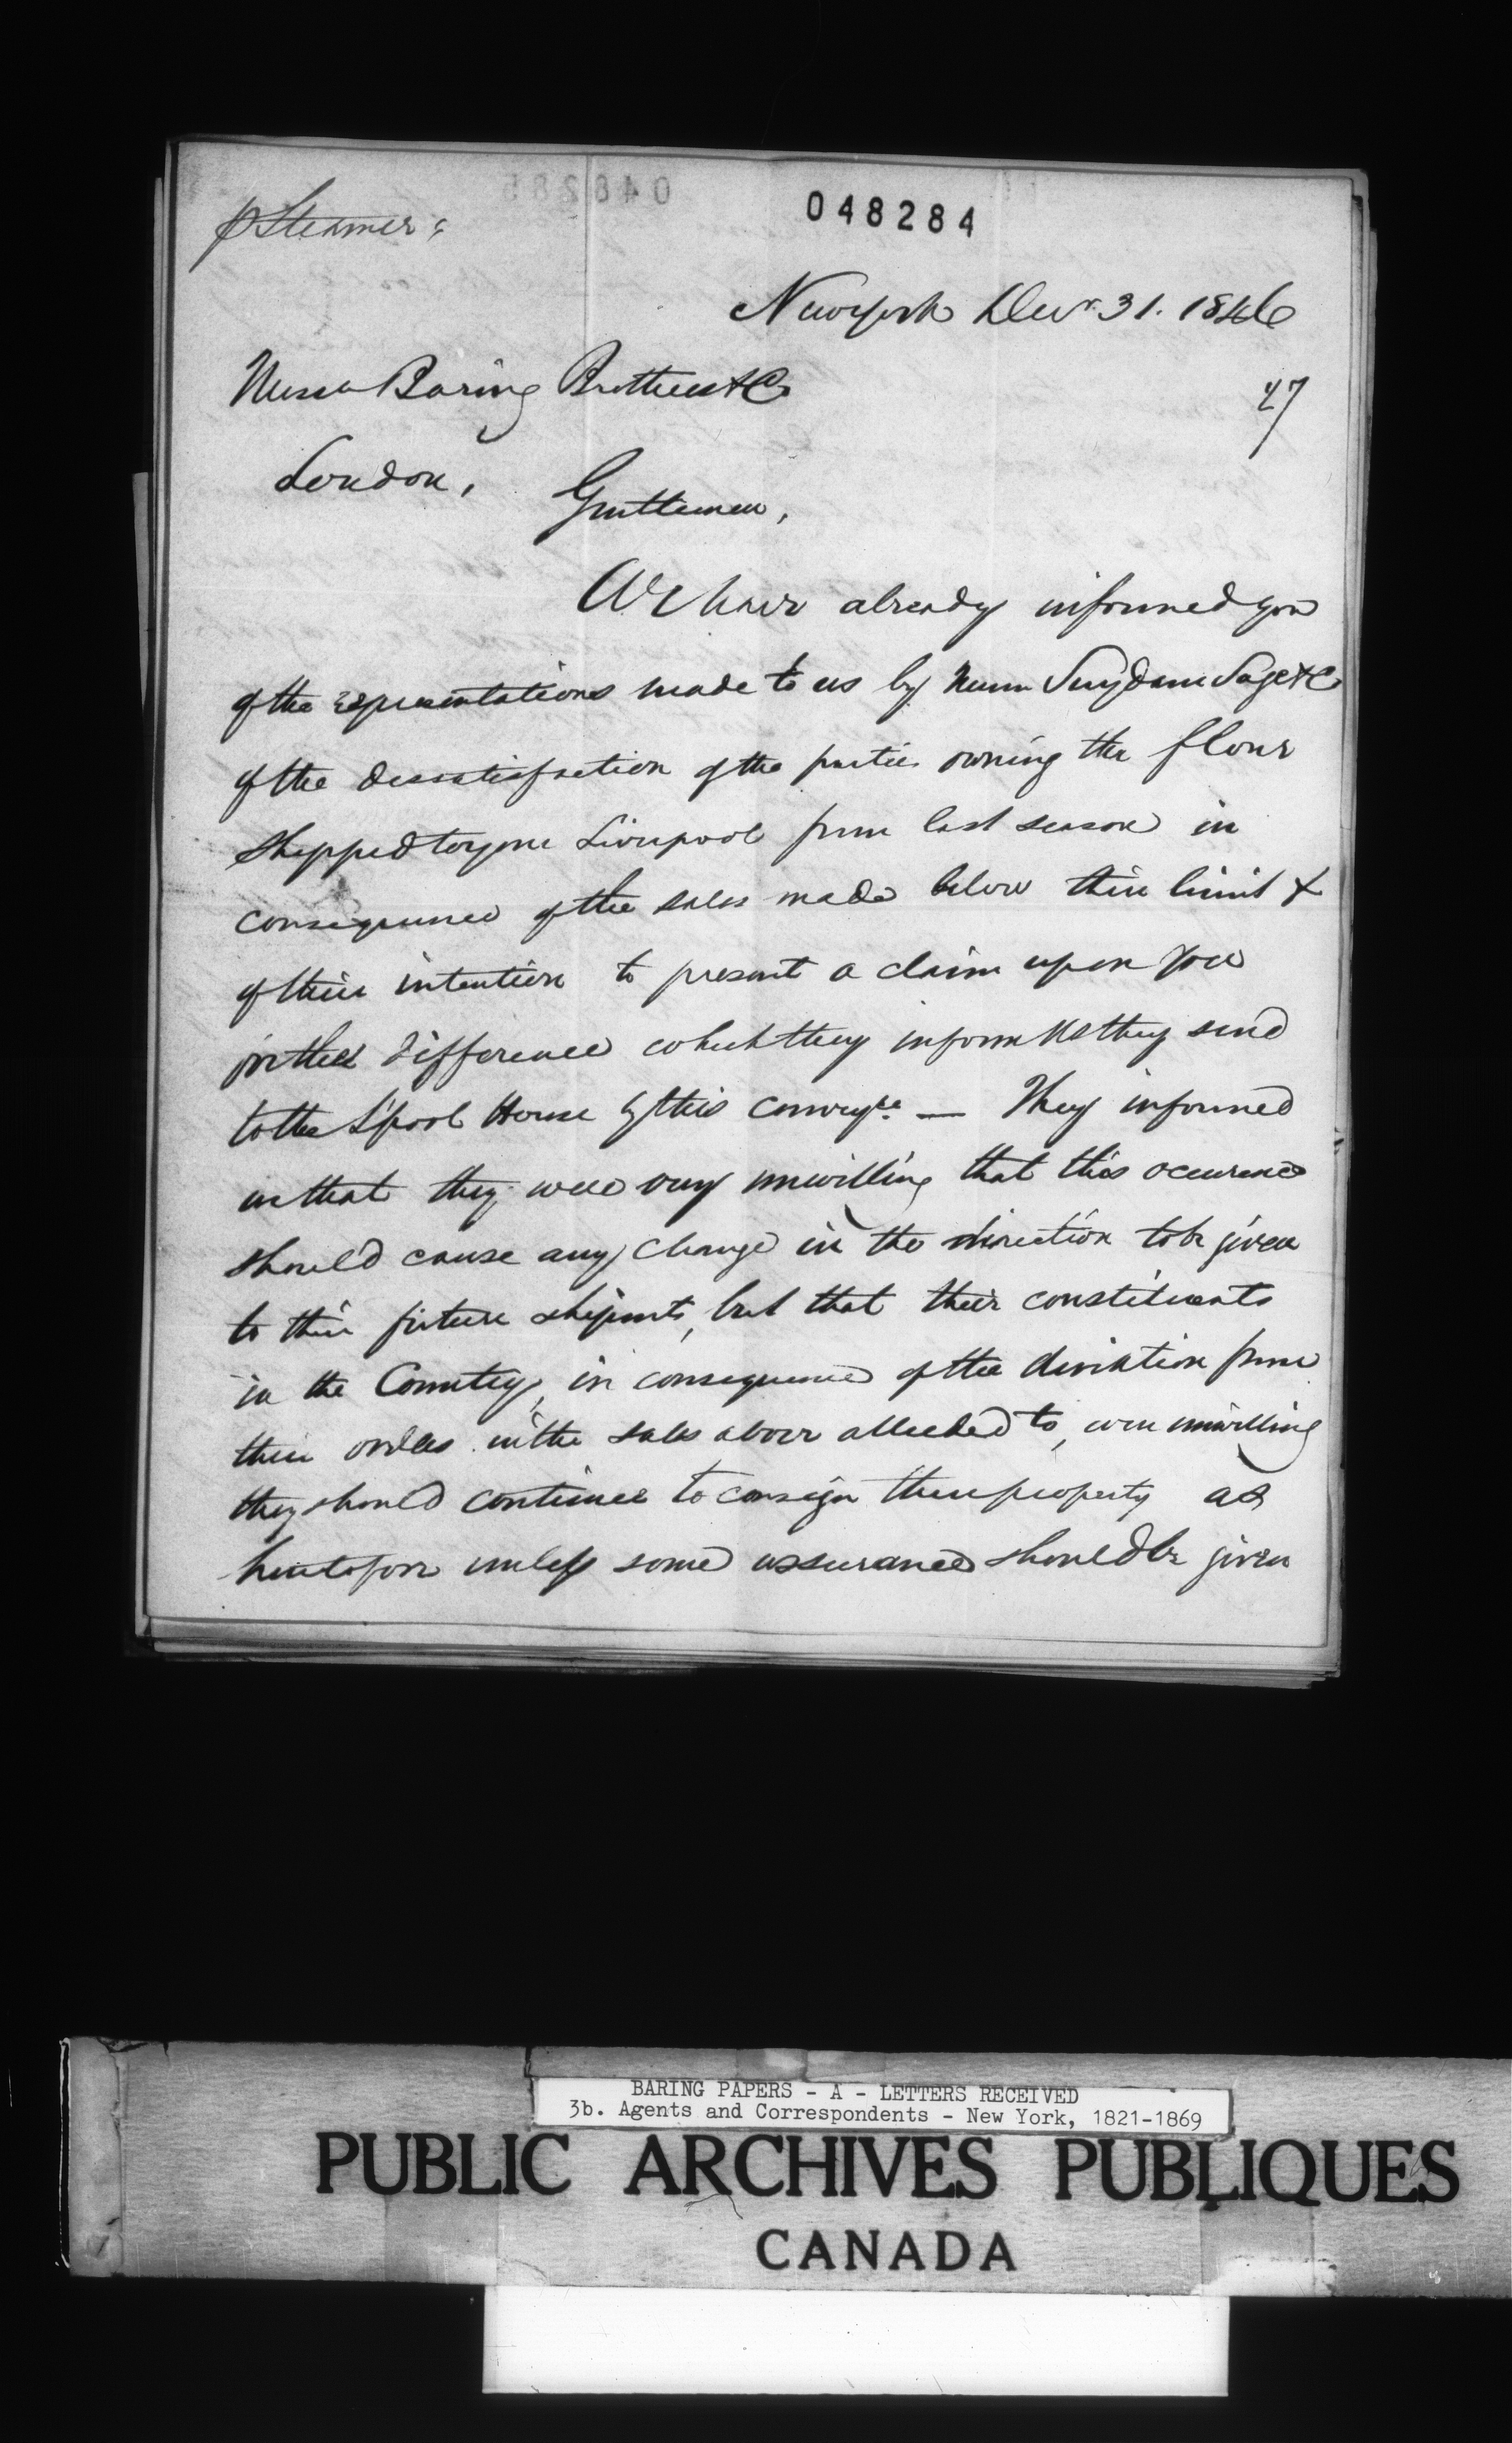 048284
p Steamer:
New york Decr. 31. 1846
Messrs Baring Brothers & Co
47
London,
Gentlemen,
We have already informed you
of the representations made to us by Messrs Suydam Sage & Co
of the dissatisfaction of the parties owning the flour
shipped to your Liverpool firm last season in
consequence of the sales made below their limit &
of their intention to present a claim upon you
for the difference which they inform us they send
to the L'pool House by this convey.ce — They informed
us that they were very unwilling that this occurence
should cause any change in the direction to be given
to their future shipments, but that their constituents
in the Country, in consequence of the deviation from
their orders in the sales above alluded to, were unwilling
they should continue to consign their property as
heretofore unless some assurance should be given
BARING PAPERS - A - LETTERS RECEIVED
3b. Agents and Correspondents - New York, 1821-1869
PUBLIC ARCHIVES PUBLIQUES
CANADA